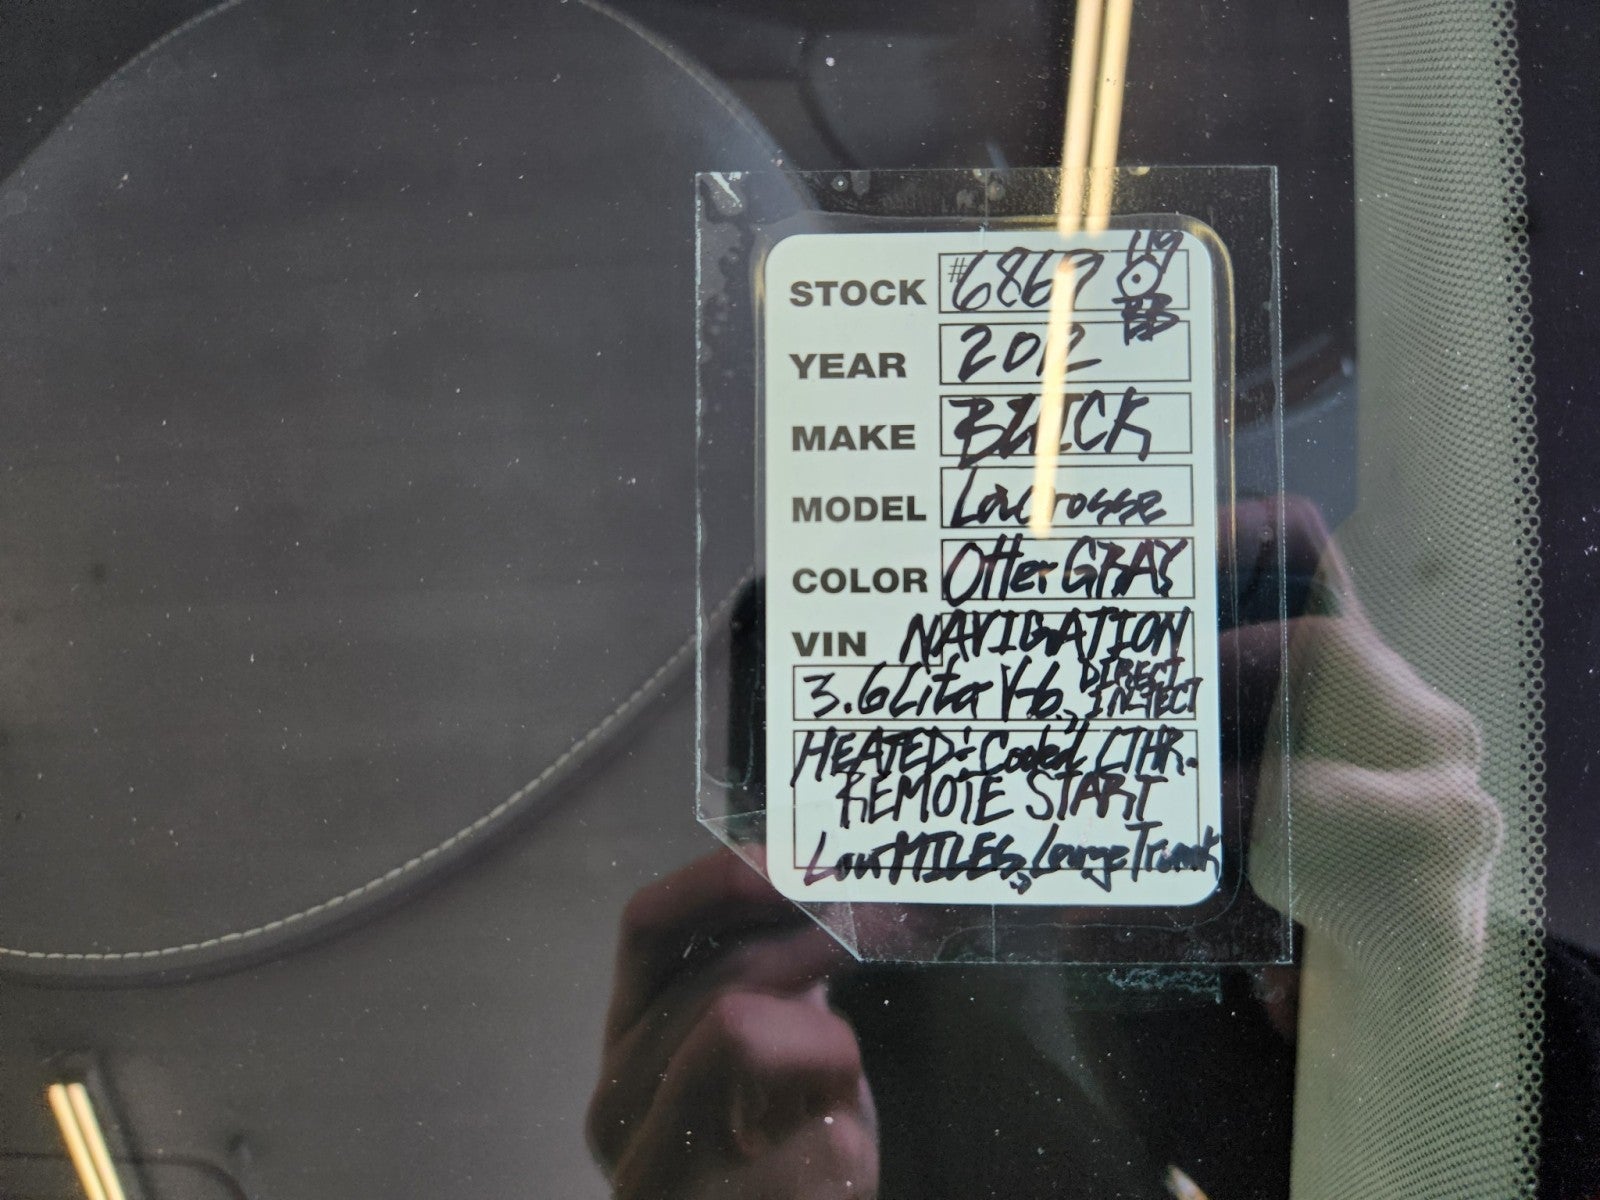 STOCK #6869
YEAR 2012
MAKE BUICK
MODEL Lacrosse
COLOR Otter GRAY
VIN NAVIGATION
3.6 Liter V-6, DIRECT INJECT
HEATED + Cooled LTHR.
REMOTE START
Low MILES, Large Trunk